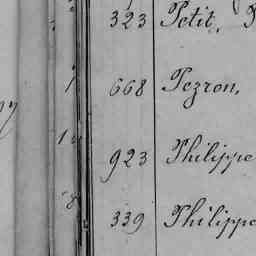 323 Petit,
668 Pezron,
923 Philippe
339 Philippe